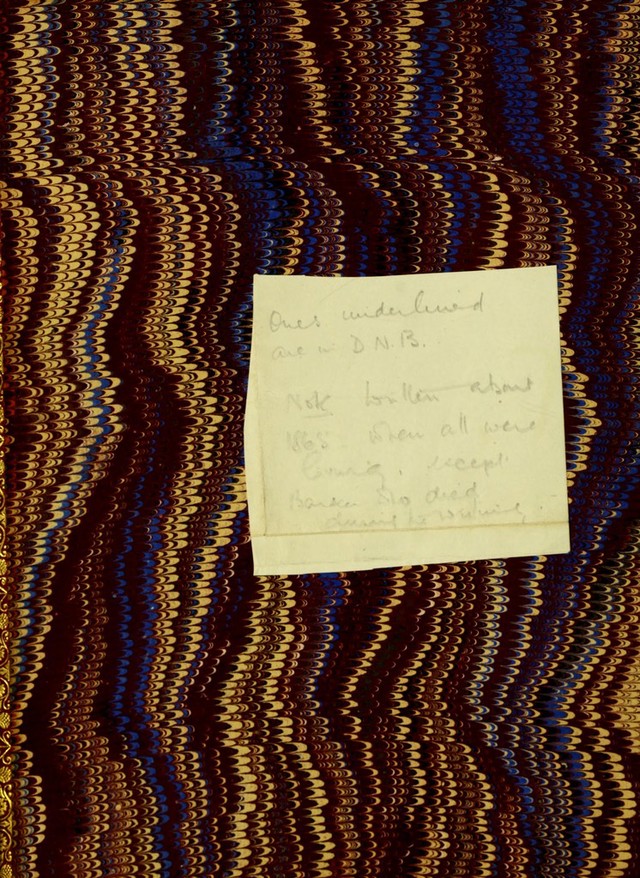 Ones underlined
are in D.N.B.
Note written about
1865 when all were
living, except
who died
during